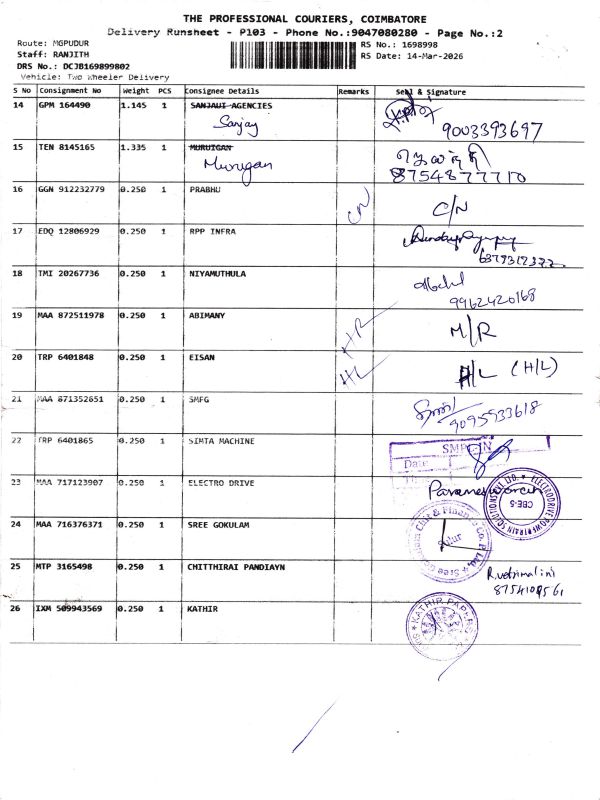 THE PROFESSIONAL COURIERS, COIMBATORE
Delivery Runsheet - P103 - Phone No.:9047080280 - Page No.:2
Route: MGPUDUR
Staff: RANJITH
DRS No.: DCJB169899802
Vehicle: Two Wheeler Delivery
RS No.: 1698998
RS Date: 14-Mar-2026
S No Consignment No Weight PCS Consignee Details Remarks Seal & Signature
14 GPM 164490 1.145 1 SANJAUI AGENCIES
Sanjay 9003393697
15 TEN 8145165 1.335 1 MURUIGAN
Murugan 8754877710
16 GGN 912232779 0.250 1 PRABHU CN C/N
17 EDQ 12806929 0.250 1 RPP INFRA
6379312372
18 TMI 20267736 0.250 1 NIYAMUTHULA
9962420168
19 MAA 872511978 0.250 1 ABIMANY HR M/R
20 TRP 6401848 0.250 1 EISAN HL H/L (H/L)
21 MAA 871352651 0.250 1 SMFG
9095933618
22 TRP 6401865 0.250 1 SIMTA MACHINE
Date
23 MAA 717123907 0.250 1 ELECTRO DRIVE Parameswaran
ELECTRODRIVE POWERTRAIN SOLUTIONS PVT. LTD. CBE-5
24 MAA 716376371 0.250 1 SREE GOKULAM
Sree Gokulam Chit & Finance Co. P. Ltd.
25 MTP 3165498 0.250 1 CHITTHIRAI PANDIAYN
26 IXM 509943569 0.250 1 KATHIR
KATHIR PAPERS